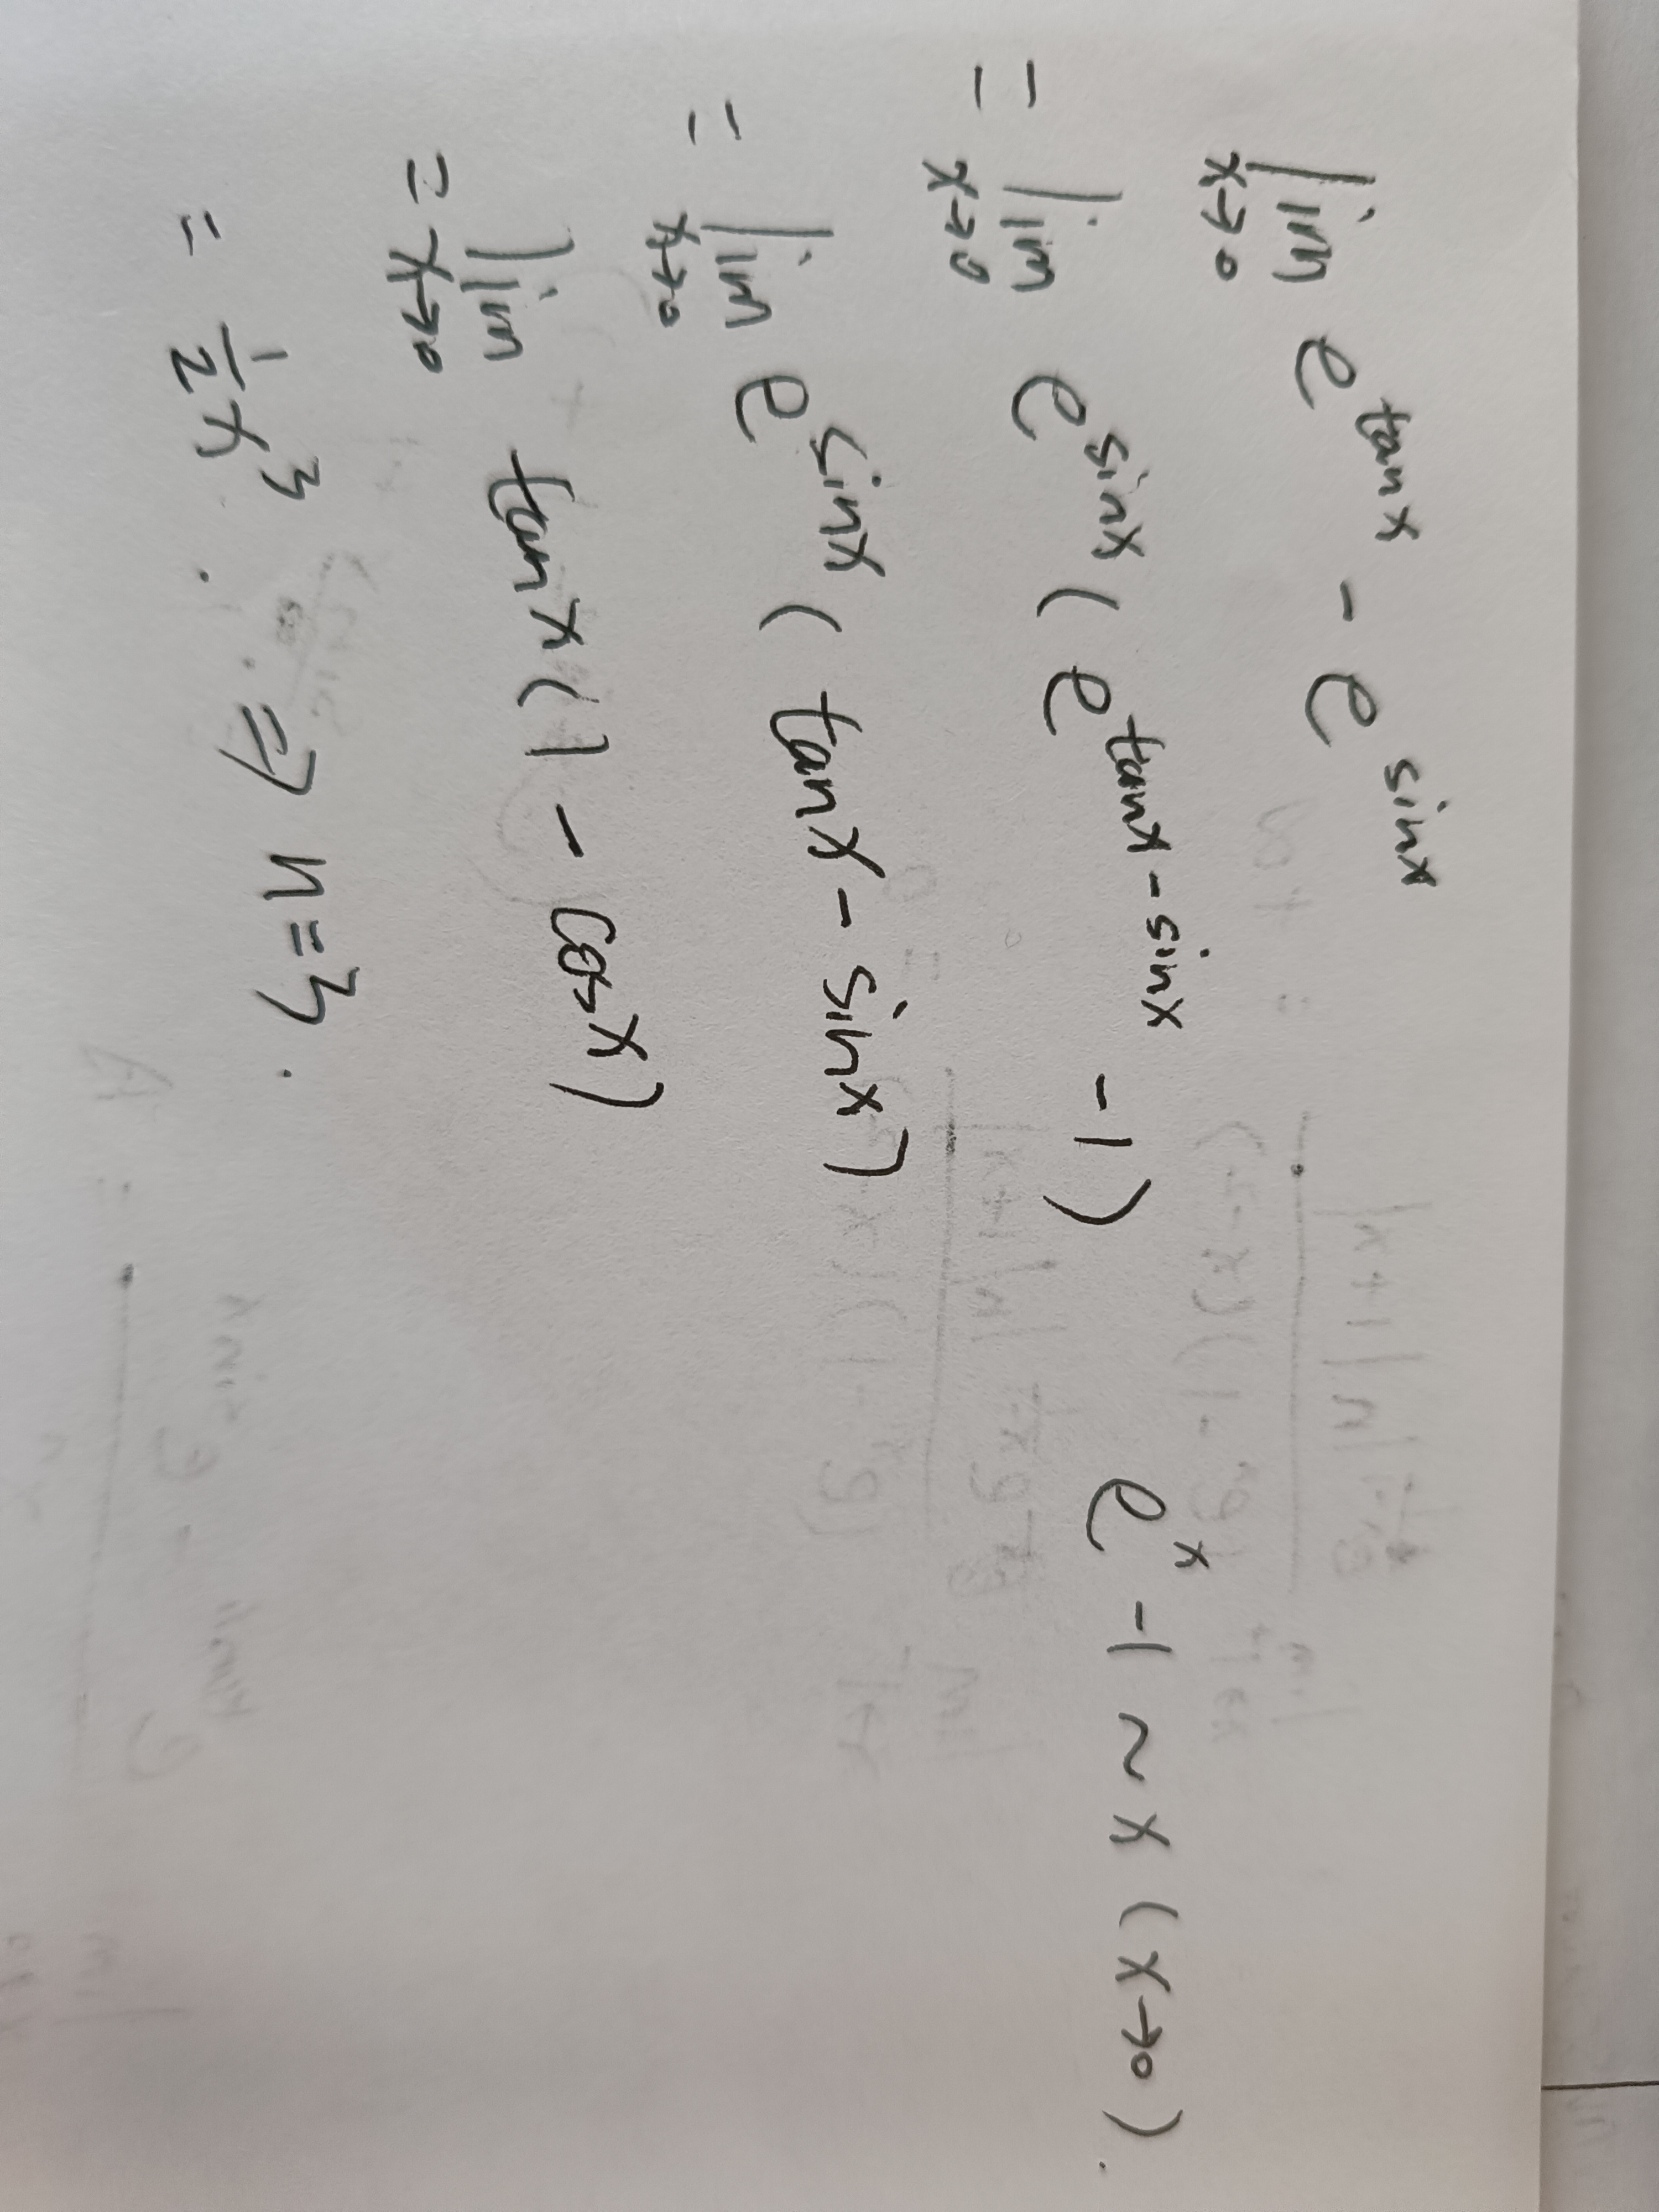 lim x→0 e^tanx - e^sinx
= lim x→0 e^sinx ( e^tanx-sinx - 1 )   e^x - 1 ~ x ( x→0 ) .
= lim x→0 e^sinx ( tanx - sinx )
= lim x→0 tanx ( 1 - cosx )
= 1/2 x^3 . ⇒ n=3 .